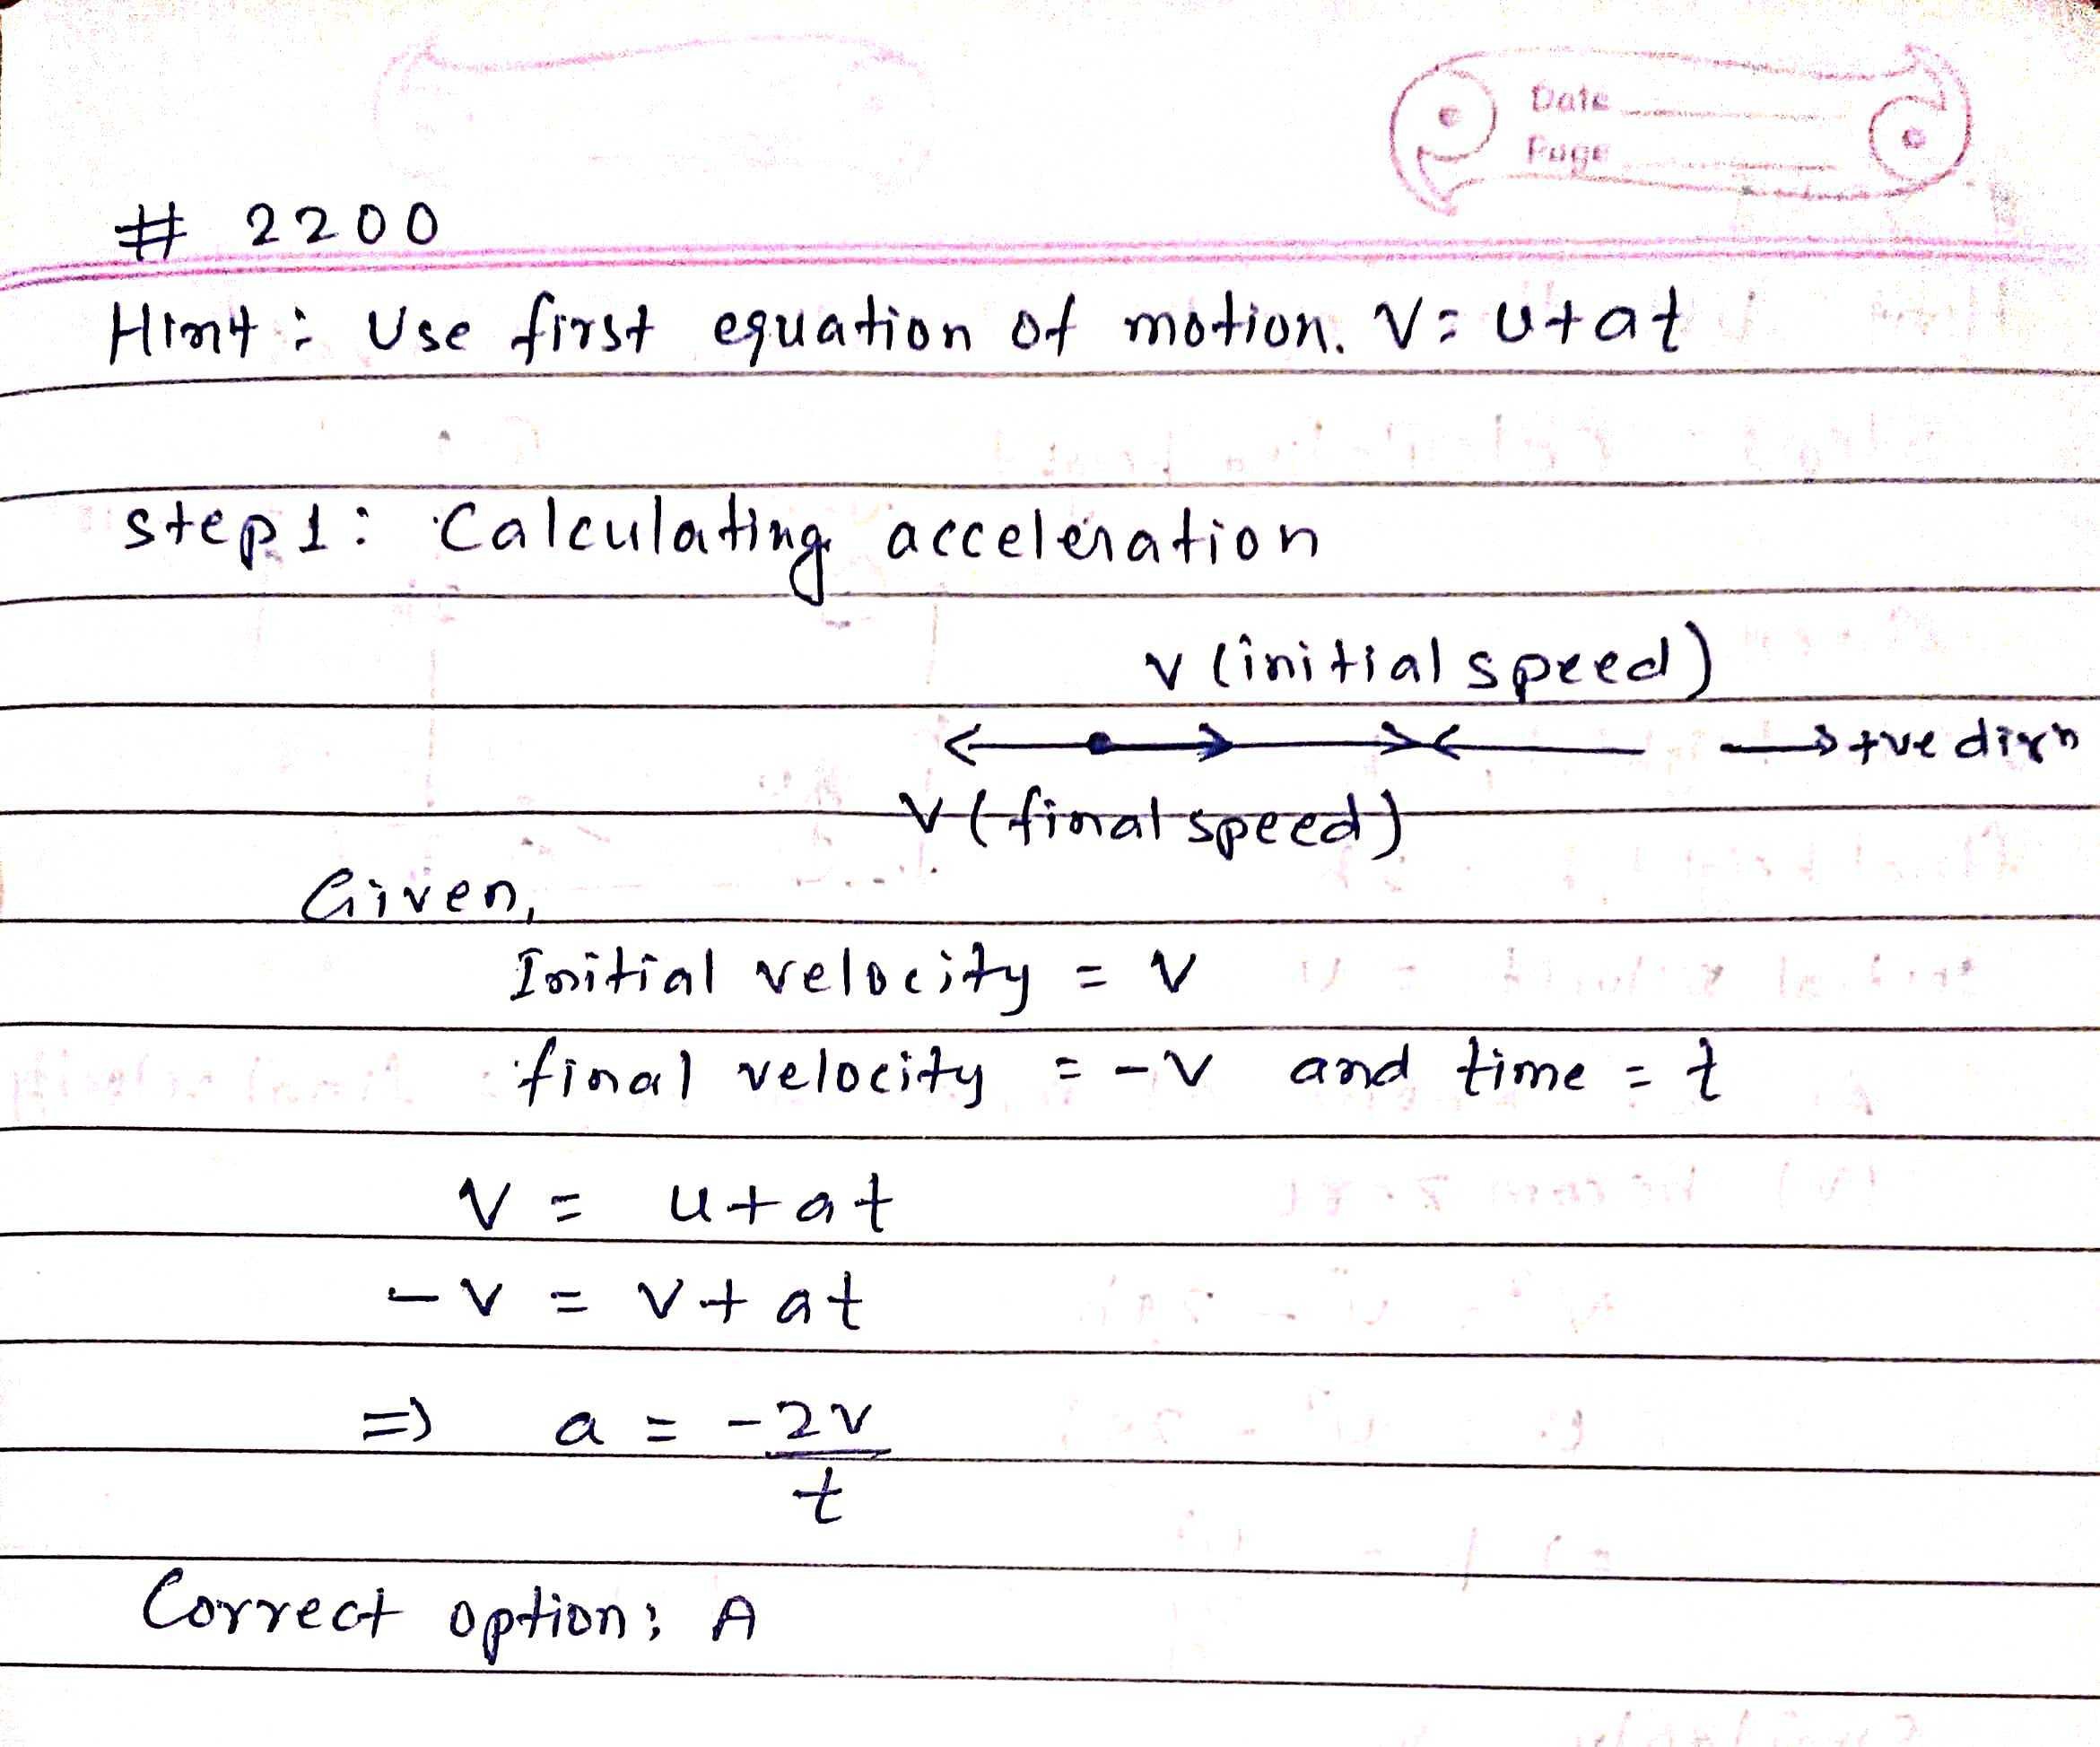 Date
Page
# 2200
Hint : Use first equation of motion. V = u+at
step 1 : Calculating acceleration
v (initial speed)
→ +ve dirn
v (final speed)
Given,
Initial velocity = v
final velocity = -v and time = t
v = u+at
-v = v+at
=> a = -2v/t
Correct option: A